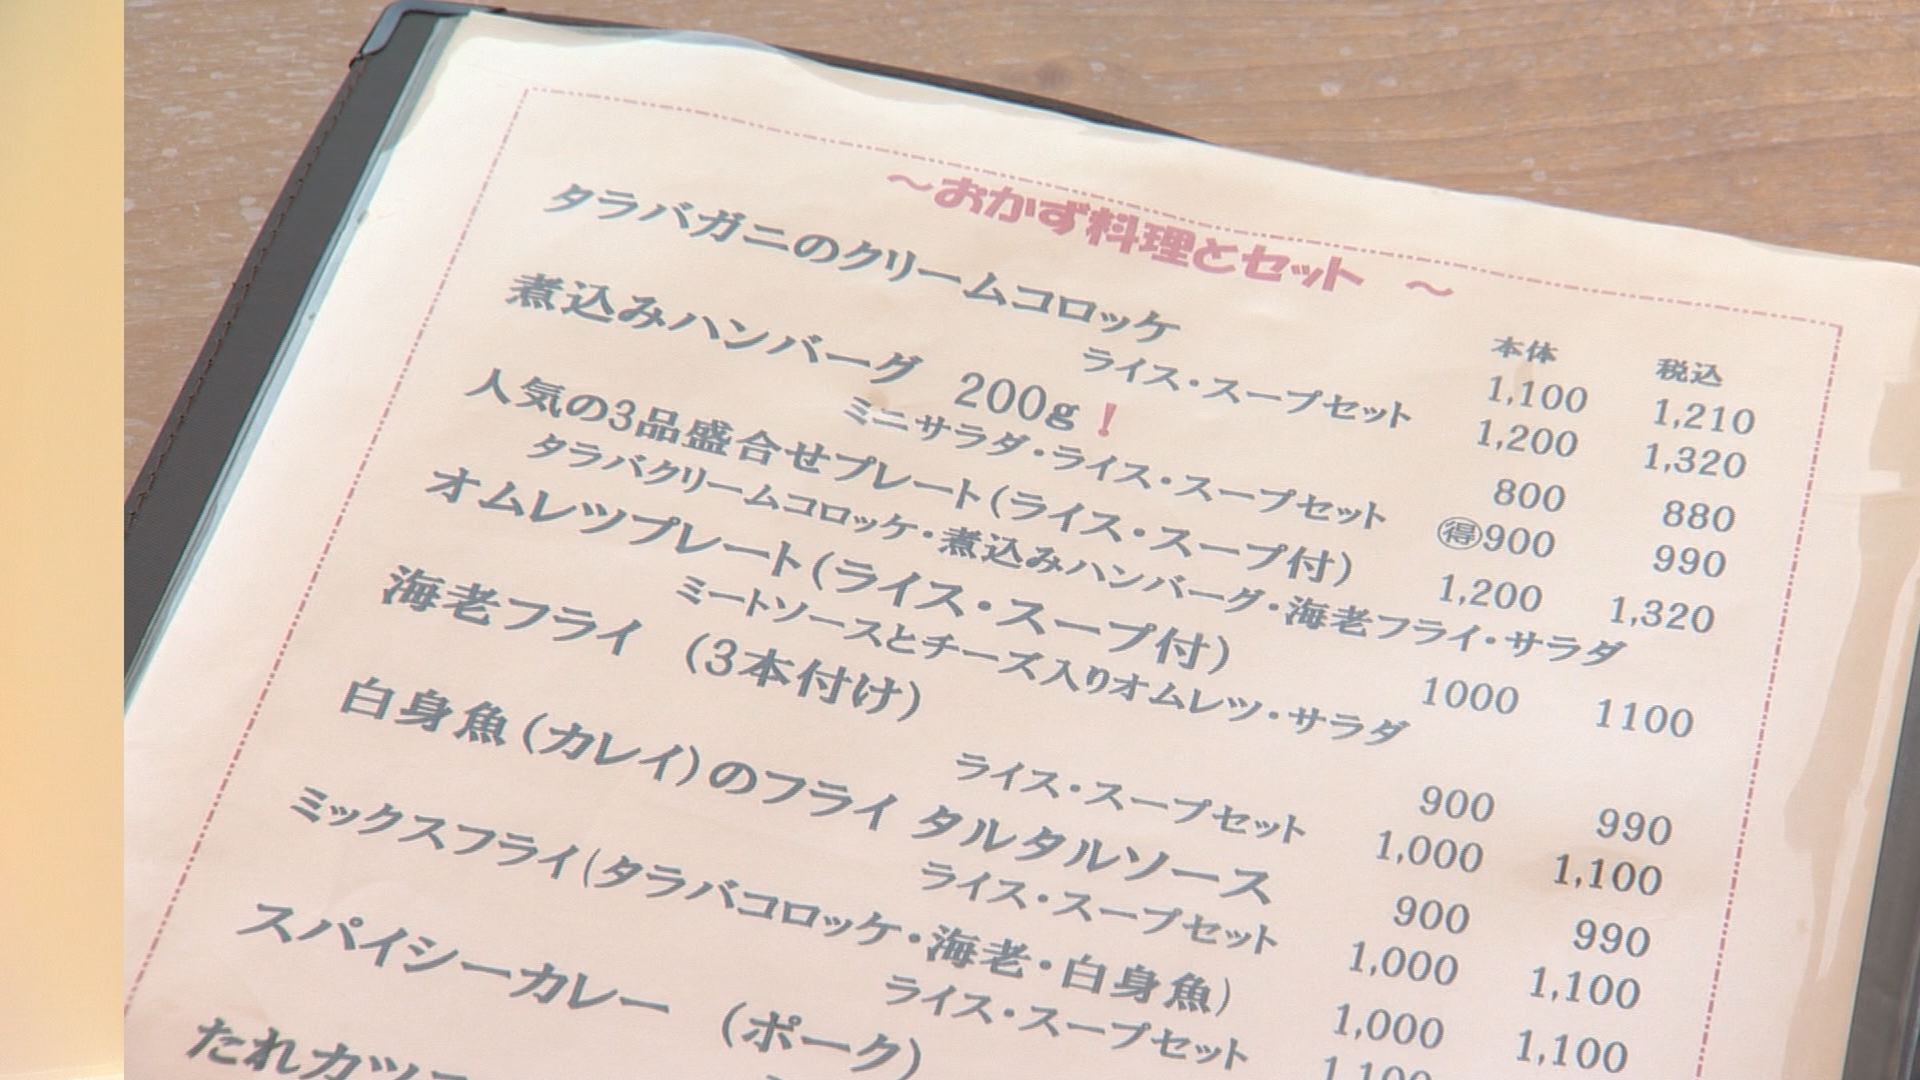 ～おかず料理とセット ～
本体 税込
タラバガニのクリームコロッケ 1,100 1,210
ライス・スープセット 1,200 1,320
煮込みハンバーグ 200g！ 800 880
ミニサラダ・ライス・スープセット ㊝900 990
人気の3品盛合せプレート(ライス・スープ付) 1,200 1,320
タラバクリームコロッケ・煮込みハンバーグ・海老フライ・サラダ
オムレツプレート(ライス・スープ付) 1000 1100
ミートソースとチーズ入りオムレツ・サラダ
海老フライ (3本付け) 900 990
ライス・スープセット 1,000 1,100
白身魚(カレイ)のフライ タルタルソース 900 990
ライス・スープセット 1,000 1,100
ミックスフライ(タラバコロッケ・海老・白身魚) 1,000 1,100
ライス・スープセット 1,100
スパイシーカレー (ポーク)
たれカツ